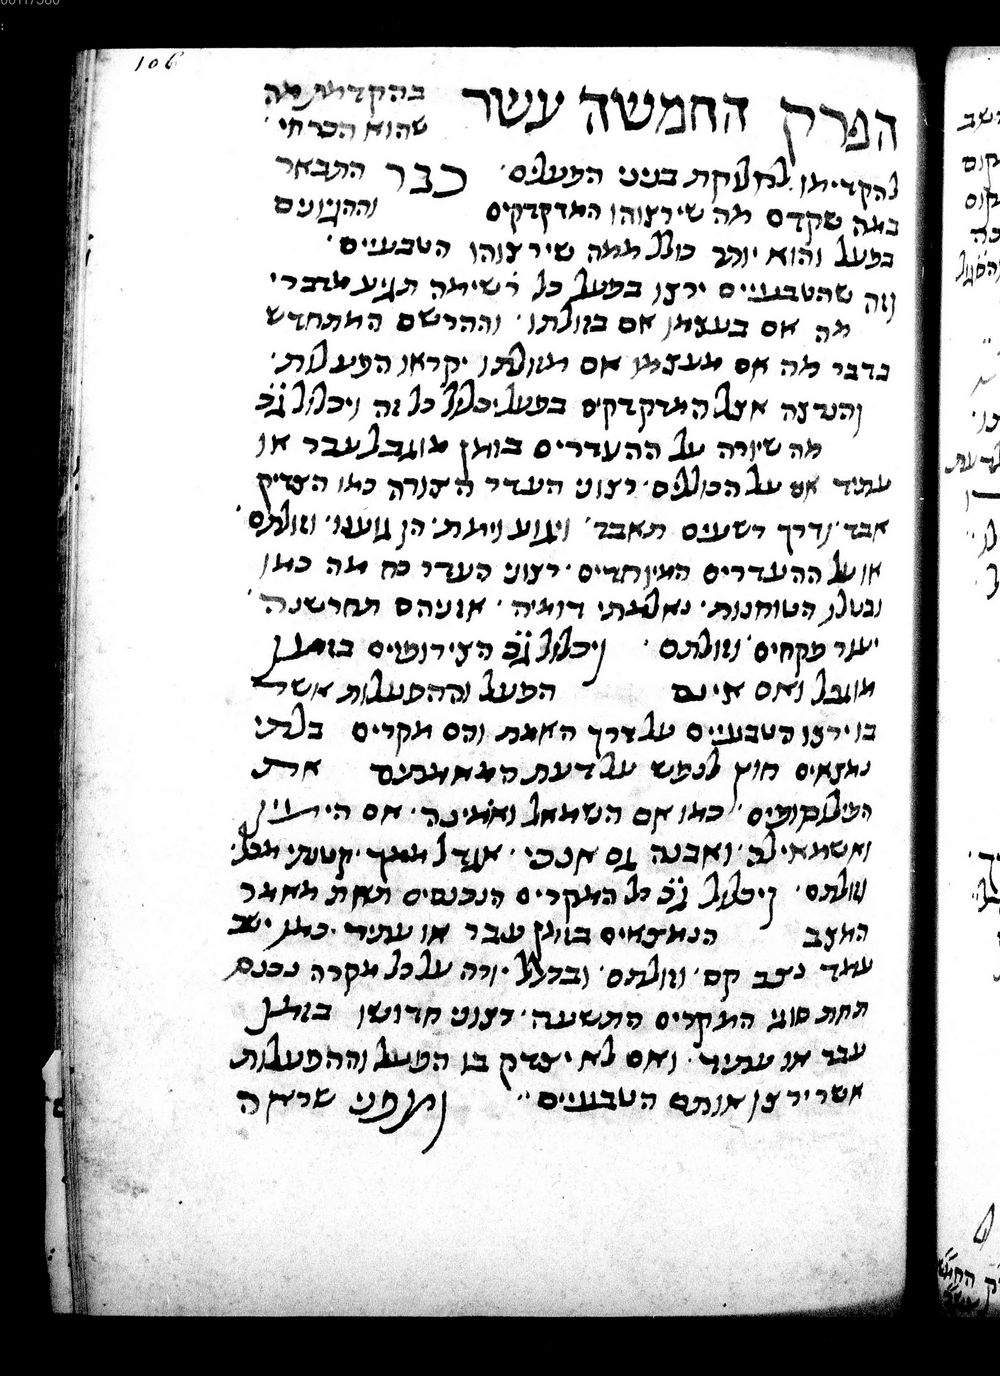 106
הפרק החמשה עשר בהקדמת מה
שהוא הכרחי
להקדימו לחלוקת בניני הפעלים כבר התבאר
במה שקדם מה שירצוהו המדקדקים וההגיונים
בפעל והוא יותר כולל ממה שירצוהו הטבעיים
וזה שהטבעיים ירצו בפעל כל רשימה תגיע מדברי
מה אם בעצמו אם בזולתו והרשם המתחדש
בדבר מה אם מעצמו אם מזולתו יקראו הפעלות
והנרצה אצל המדקדקים בפעל יכלול כל זה ויכלול ג״כ
מה שיורה על ההעדרים בזמן מוגבל עבר או
עתיד אם על הכוללים רצוני העדר הצורה כמו הצדיק
אבד ודרך רשעים תאבד ויגוע וימת הן גוענו וזולתם
או על ההעדרים המיוחדים רצוני העדר כח מה כמו
ובטלו הטוחנות נאלמתי דומיה אזניהם תחרשנה
יעור פקחים וזולתם ויכלול ג״כ הצירופיים בזמן
מוגבל ואם אינם הפעל וההפעלות אשר
בו ירצו הטבעיים על דרך האמת והם מקרים בלתי
נמצאים חוץ לנפש על דעת המאמתים את
הפילוסופים כמו אם השמאל ואימינה אם הימין
ואשמאילה ואבנה גם אנכי אגדל ממך קטנתי מכל
וזולתם ויכלול ג״כ כל המקרים הנכנסים תחת מאמר
המצב הנמצאים בזמן עבר או עתיד כמו ישב
עמד נצב קם וזולתם ובכלל יורה על כל מקרה נכנס
תחת סוגי המקרים התשעה רצוני חדושו בזמן
עבר או עתיד ואם לא יצדק בו הפעל וההפעלות
אשר ירצו אותם הטבעיים ומפני שראה